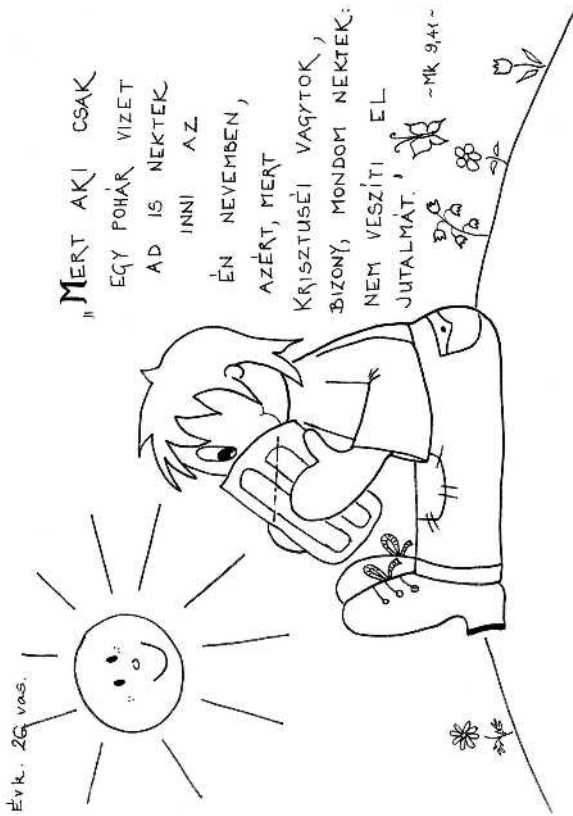 Évk. 26. vas.
„MERT AKI CSAK
EGY POHÁR VIZET
AD IS NEKTEK
INNI AZ
ÉN NEVEMBEN,
AZÉRT, MERT
KRISZTUSÉI VAGYTOK,
BIZONY, MONDOM NEKTEK:
NEM VESZÍTI EL
JUTALMÁT."
~Mk 9,41~